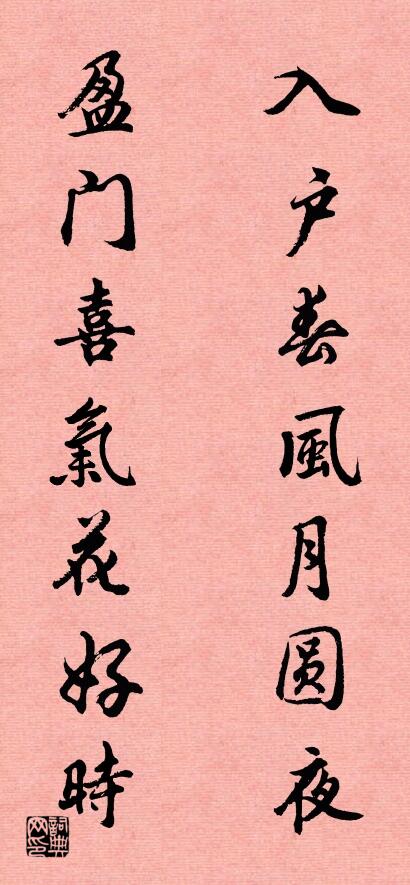 入户春風月圆夜
盈门喜氣花好時
詞典网印